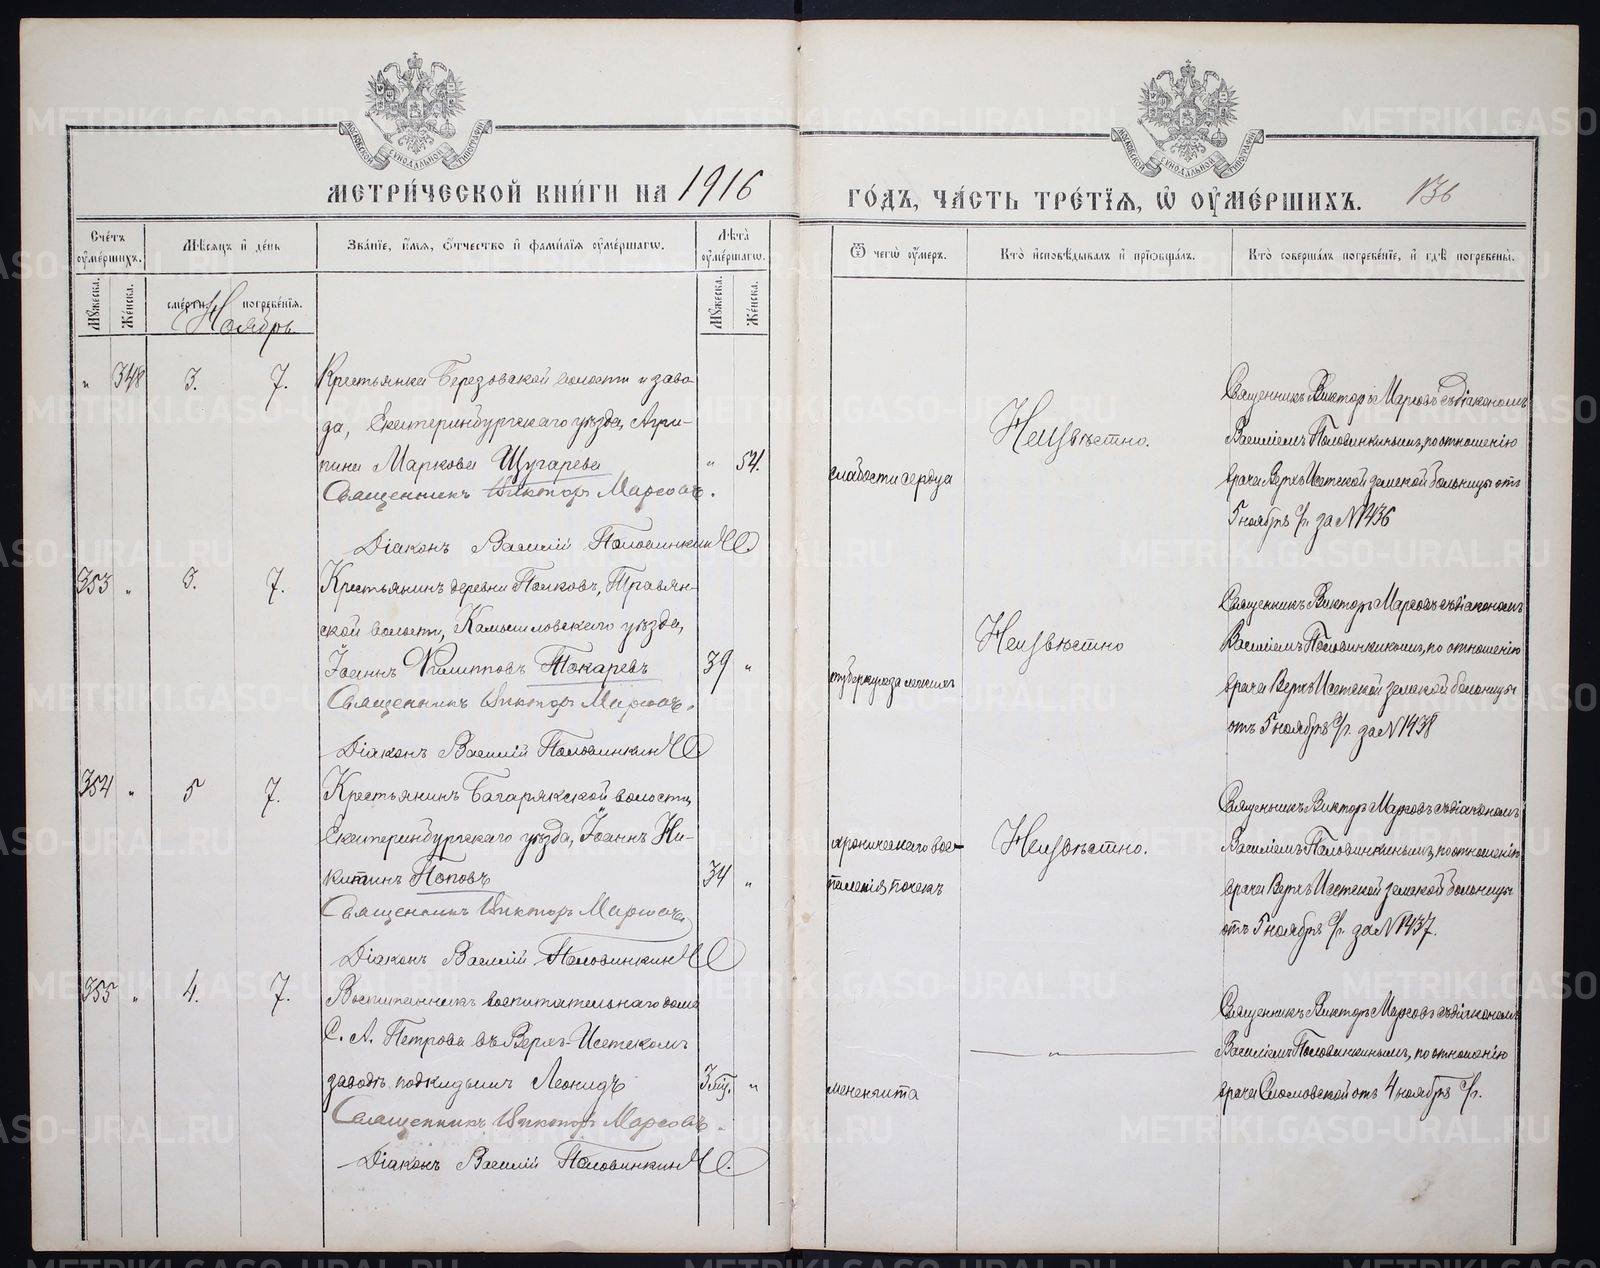 МЕТРИ́ЧЕСКОЙ КНИ́ГИ НА 1916
ГО́ДЪ, ЧА́СТЬ ТРЕ́ТЇЯ, Ѡ҆ ОУ҆МЕ́РШИХЪ. 136
Сче́тъ оу҆ме́ршихъ.
Мѣсяцъ и҆ де́нь
Зва́нїе, и҆́мя, ѻ҆́тчество и҆ фами́лїя оу҆ме́ршагѡ.
Лѣта̀ оу҆ме́ршагѡ.
Ѿ чегѡ̀ оу҆́меръ.
Кто̀ и҆сповѣ́дывалъ и҆ прїѡбща́лъ.
Кто̀ соверша́лъ погребе́нїе, и҆ гдѣ̀ погребены̀.
Мꙋ́жеска.
Же́нска.
сме́рти.
погребе́нїя.
Мꙋ́жеска.
Же́нска.
Ноябрь
" 348 3. 7. Крестьянка Березовской волости и заво-
да, Екатеринбургскаго уѣзда, Агри-
пина Маркова Щугарева " 54.
Священникъ Викторъ Марсовъ.
Діаконъ Василій Половинкинъ
слабости сердца
Неизвѣстно.
Священникъ Викторъ Марсовъ съ діакономъ
Василіемъ Половинкинымъ, по отношенію
врача Верхъ-Исетской земской больницы отъ
5 ноября с/г. за № 1436
353 " 3. 7. Крестьянинъ деревни Травян-
ской волости, Камышловскаго уѣзда,
Іоаннъ Филипповъ Токаревъ 39 "
Священникъ Викторъ Марсовъ.
Діаконъ Василій Половинкинъ
туберкулеза легкихъ
Неизвѣстно
Священникъ Викторъ Марсовъ съ діакономъ
Василіемъ Половинкинымъ, по отношенію
врача Верхъ-Исетской земской больницы
отъ 5 ноября с/г. за № 1438
354 " 5 7. Крестьянинъ Багарякской волости,
Екатеринбургскаго уѣзда, Іоаннъ Ни-
китинъ Поповъ 34 "
Священникъ Викторъ Марсовъ
Діаконъ Василій Половинкинъ
хроническаго вос-
паленія почекъ
Неизвѣстно.
Священникъ Викторъ Марсовъ съ діакономъ
Василіемъ Половинкинымъ, по отношенію
врача Верхъ-Исетской земской больницы
отъ 5 ноября с/г. за № 1437.
355 " 4. 7. Воспитанникъ воспитательнаго дома
С. А. Петрова въ Верхъ-Исетскомъ
заводѣ подкидышъ Леонидъ 3 мѣ. "
Священникъ Викторъ Марсовъ.
Діаконъ Василій Половинкинъ
менингита
"
Священникъ Викторъ Марсовъ съ діакономъ
Василіемъ Половинкинымъ, по отношенію
врача отъ 4 ноября с/г.
METRIKI.GASO-URAL.RU